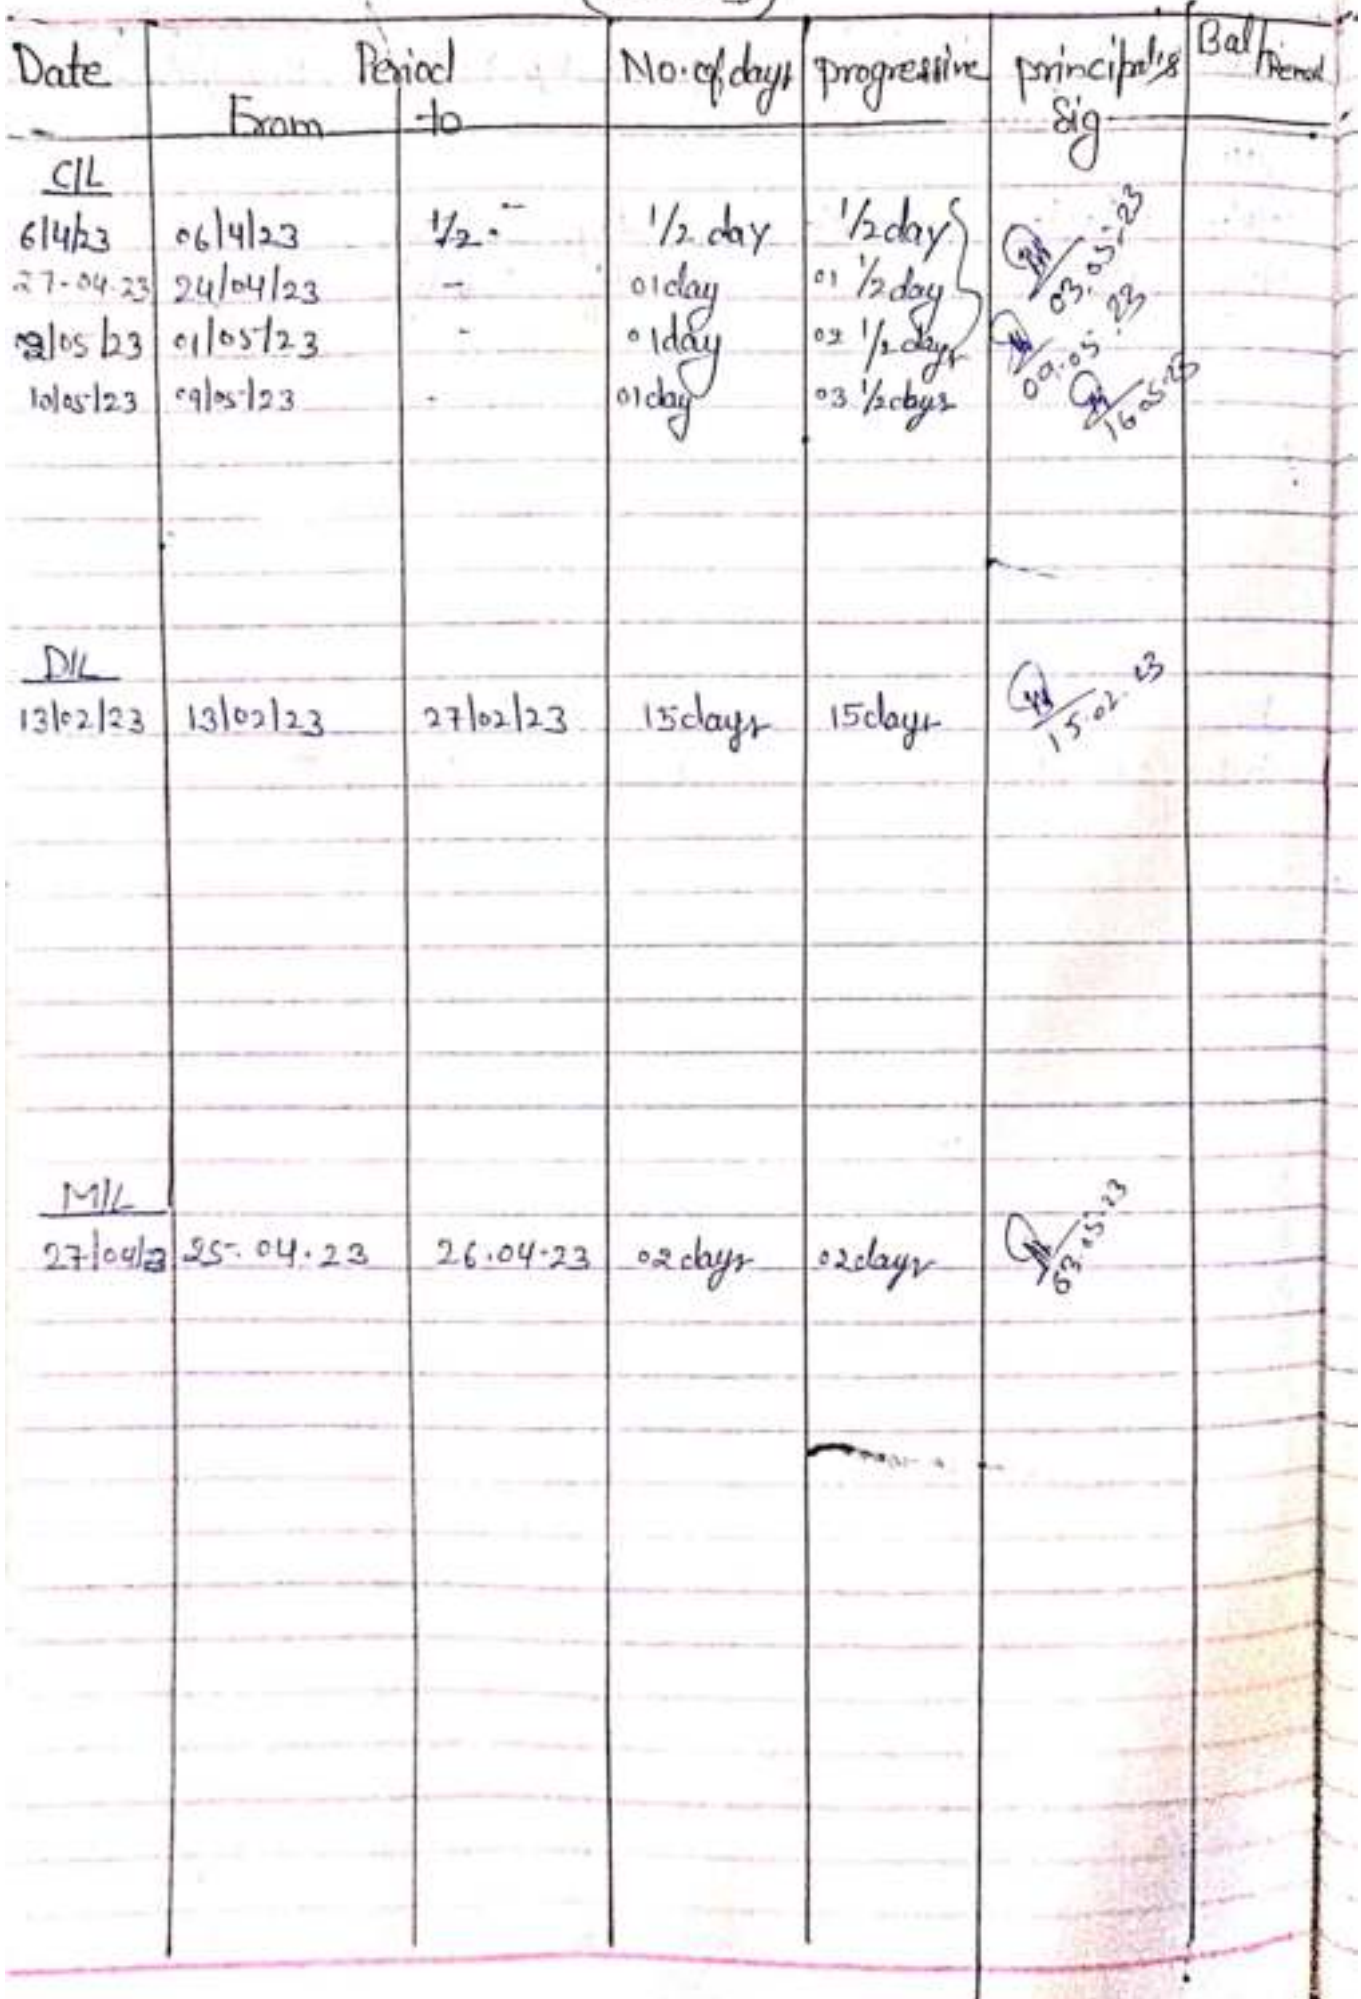 Date Period No. of days progressive principal's Bal/Period
From to Sig
C/L
6/4/23 06/4/23 1/2 - 1/2 day 1/2 day
27-04-23 24/04/23 - 01 day 01 1/2 day 03.05.23
2/05/23 01/05/23 - 01 day 02 1/2 days 09.05.23
10/05/23 09/05/23 - 01 day 03 1/2 days 16.05.23
D/L
13/02/23 13/02/23 27/02/23 15 days 15 days 15.02.23
M/L
27/04/23 25.04.23 26.04.23 02 days 02 days 03.05.23